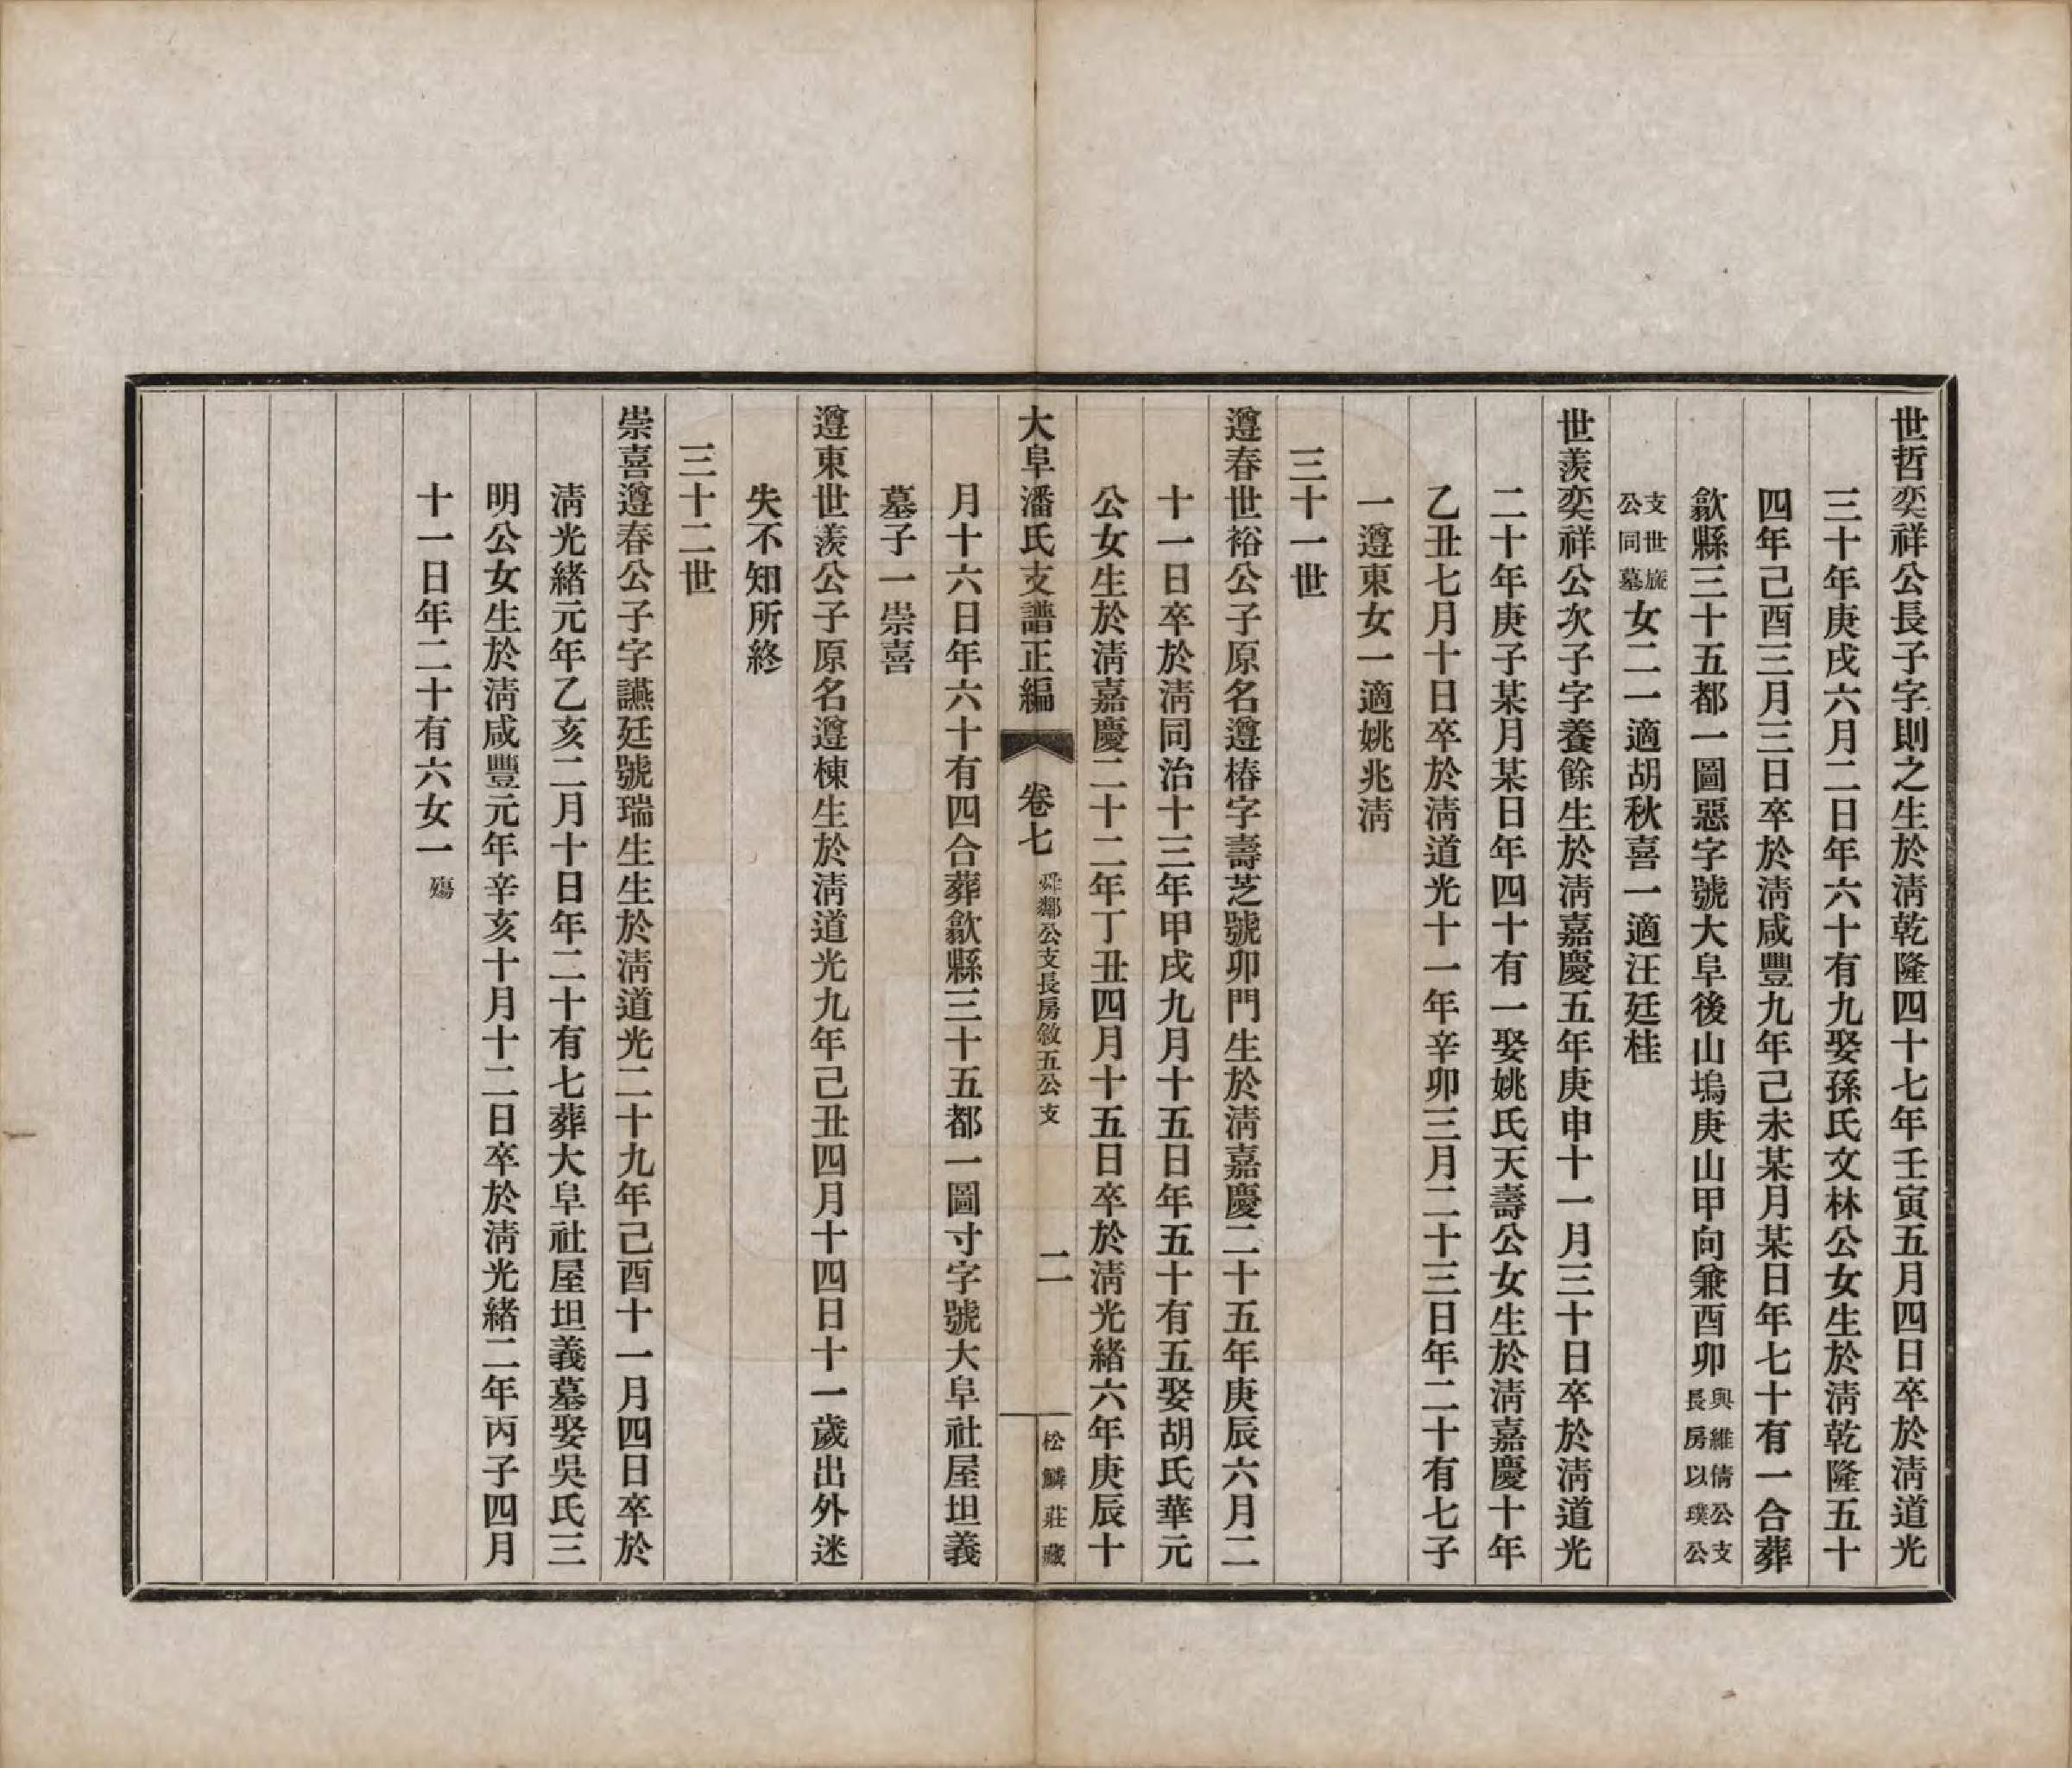 世哲奕祥公長子字則之生於淸乾隆四十七年壬寅五月四日卒於淸道光
三十年庚戌六月二日年六十有九娶孫氏文林公女生於淸乾隆五十
四年己酉三月三日卒於淸咸豐九年己未某月某日年七十有一合葬
歙縣三十五都一圖惡字號大阜後山塢庚山甲向兼酉卯與維倩公支長房以璞公
支世旒公同墓女二一適胡秋喜一適汪廷桂
世羨奕祥公次子字養餘生於淸嘉慶五年庚申十一月三十日卒於淸道光
二十年庚子某月某日年四十有一娶姚氏天壽公女生於淸嘉慶十年
乙丑七月十日卒於淸道光十一年辛卯三月二十三日年二十有七子
一遵東女一適姚兆淸
三十一世
遵春世裕公子原名遵椿字壽芝號卯門生於淸嘉慶二十五年庚辰六月二
十一日卒於淸同治十三年甲戌九月十五日年五十有五娶胡氏華元
公女生於淸嘉慶二十二年丁丑四月十五日卒於淸光緒六年庚辰十
大阜潘氏支譜正編 卷七 舜鄰公支長房敘五公支 二 松鱗莊藏
月十六日年六十有四合葬歙縣三十五都一圖寸字號大阜社屋坦義
墓子一崇喜
遵東世羨公子原名遵棟生於淸道光九年己丑四月十四日十一歲出外迷
失不知所終
三十二世
崇喜遵春公子字讌廷號瑞生生於淸道光二十九年己酉十一月四日卒於
淸光緒元年乙亥二月十日年二十有七葬大阜社屋坦義墓娶吳氏三
明公女生於淸咸豐元年辛亥十月十二日卒於淸光緒二年丙子四月
十一日年二十有六女一殤